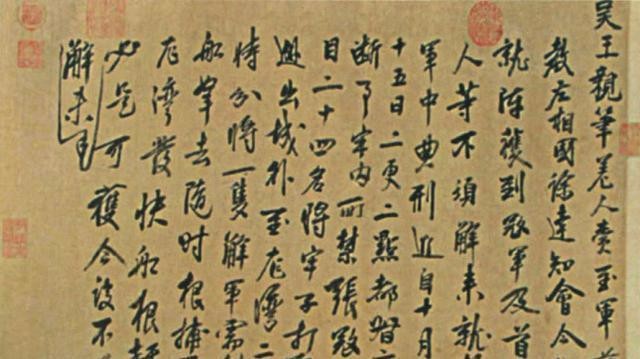 吴王親筆差人賫至軍
教左相國徐達知會今
就陣獲到寇軍及首
人等不須解来就
軍中典刑近自十月
十五日二更二點都督
断事牢内所禁張寇
目二十四名将牢子打
出城外至龍灣二
時分将一隻解軍需
船拏去随时根捕
龍灣發快船根
必是可獲今後不
解来